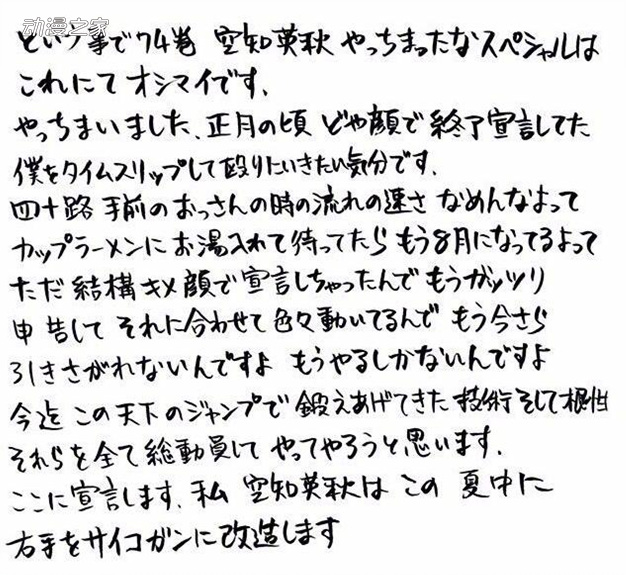 动漫之家
という事で74巻 空知英秋 やっちまったなスペシャルは
これにて オシマイです.
やっちまいました、正月の頃 どや顔で 終了宣言してた
僕をタイムスリップして殴りにいきたい気分です.
四十路 手前のおっさんの時の流れの速さ なめんなよって
カップラーメンにお湯入れて待ってたら もう8月になってるよって
ただ 結構キメ顔で宣言しちゃったんで もうガッツリ
申告して それに合わせて色々動いてるんで もう今さら
引きさがれないんですよ もうやるしかないんですよ
今迄 この天下のジャンプで 鍛えあげてきた 技術そして根性
それらを全て総動員して やってやろうと思います.
ここに宣言します、私 空知英秋は この 夏中に
右手をサイコガンに改造します